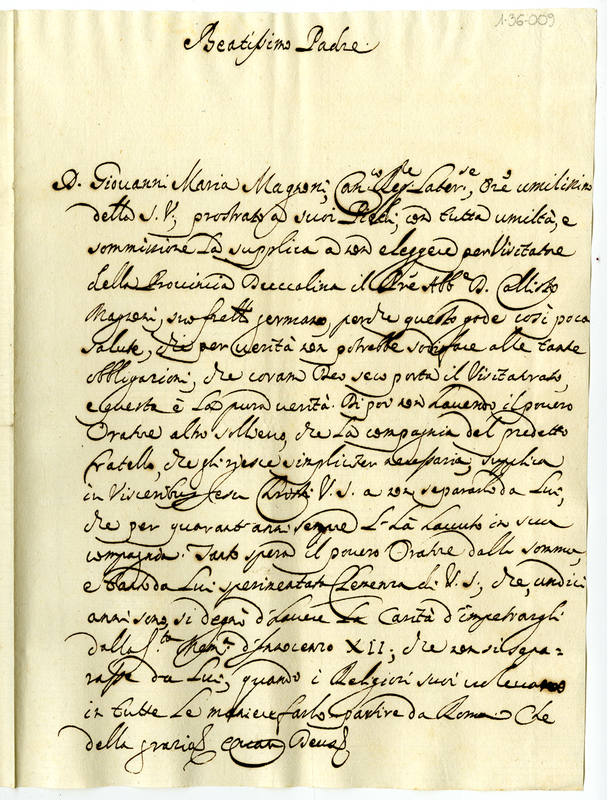 1-36-009
Beatissimo Padre
D. Giovanni Maria Magnoni, Can.co Reg.re Later.se, Ore umilissimo
della S. V., prostrato a suoi Piedi, con tutta umiltà, e
sommissione La supplica a non eleggere per Visitatore
della Provincia il Pre Abb.e D. Callisto
Magnoni, suo fratto germano, perche questo gode così poca
salute, che per verità non potrebbe sodisfare alle tante
obbligazioni, che coram Deo seco porta il Visitatorato,
e questa è La pura verità. Di poi non havendo il povero
Oratore altro sollievo, che La compagnia del predetto
fratello, che gli riesce simpliciter necessaria, supplica
in Visceribus Jesu Christi V. S. a non separarlo da Lui,
che per quarant'anni sempre L'hà havuto in sua
compagnia. Tanto spera il povero Oratore dalla somma,
e tanto da Lui sperimentata Clemenza di V. S., che, undici
anni sono, si degnò d'havere La Carità d'impetrargli
dalla S.ta Mem.a d'Innocenzo XII, che non si sepa=
rasse da Lui, quando i Religiosi suoi volevano
in tutte Le maniere farlo partire da Roma. Che
della grazia etc. Deus